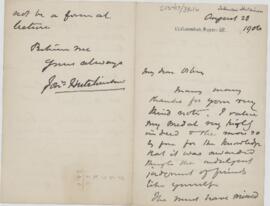 not be a formal
lecture
Believe me
Yours always
Jon. Hutchinson
August 22
1906
My dear Osler
Many many
thanks for your very
kind note. I value
my Medal very highly
indeed & the more so
for the knowledge
that it was awarded
through the indulgent
judgment of friends
like yourself.
You must have missed